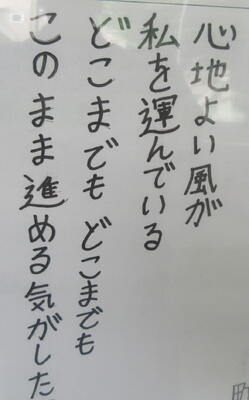 心地よい風が
私を運んでいる
どこまでも どこまでも
このまま進める気がした